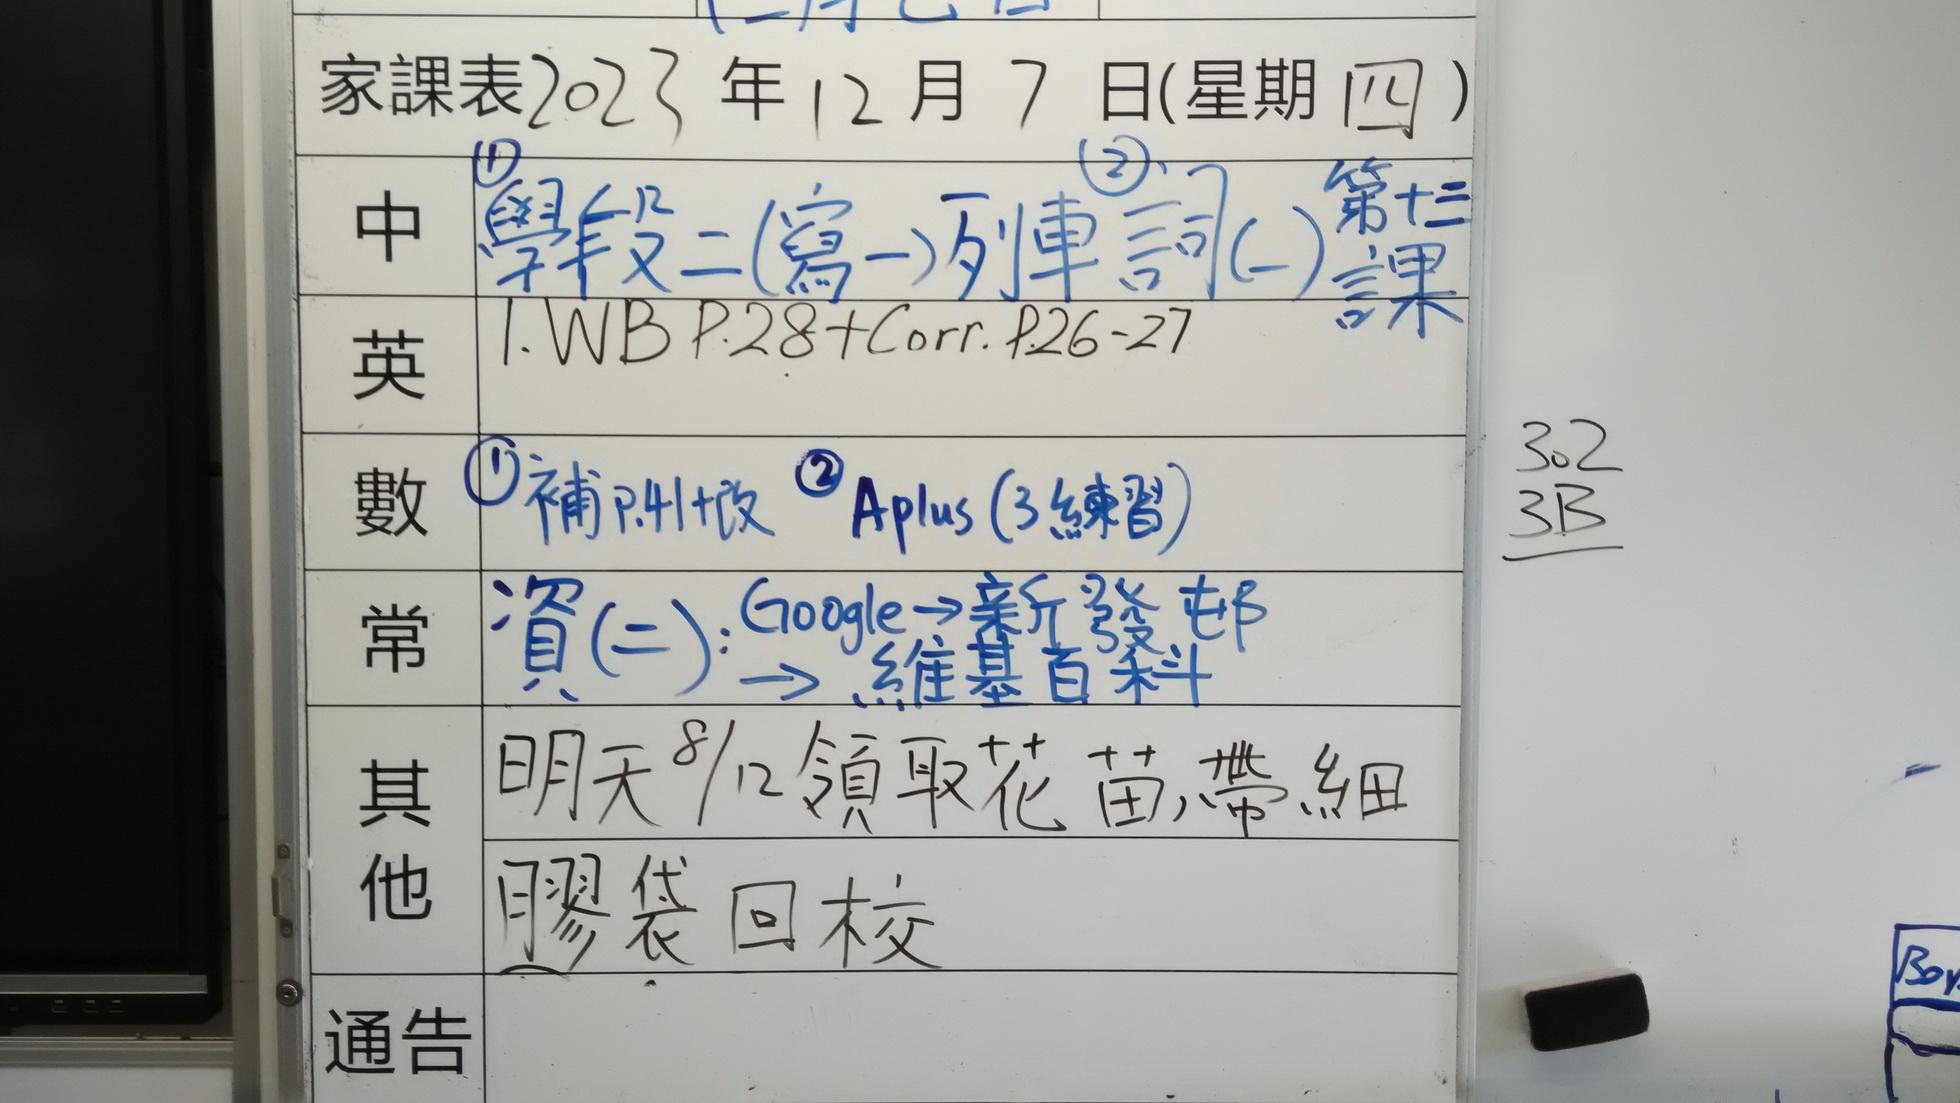 家課表2023年12月7日(星期四)
中 ①學段二(寫一)列車 ②詞(一)第十三課
英 1.WB P.28+Corr. P.26-27
數 ①補P.41+改 ②Aplus(3練習)
常 資(二): Google→新發邨
→維基百科
其他 明天8/12領取花苗,帶細
膠袋回校
通告
3.2
3B
Boy